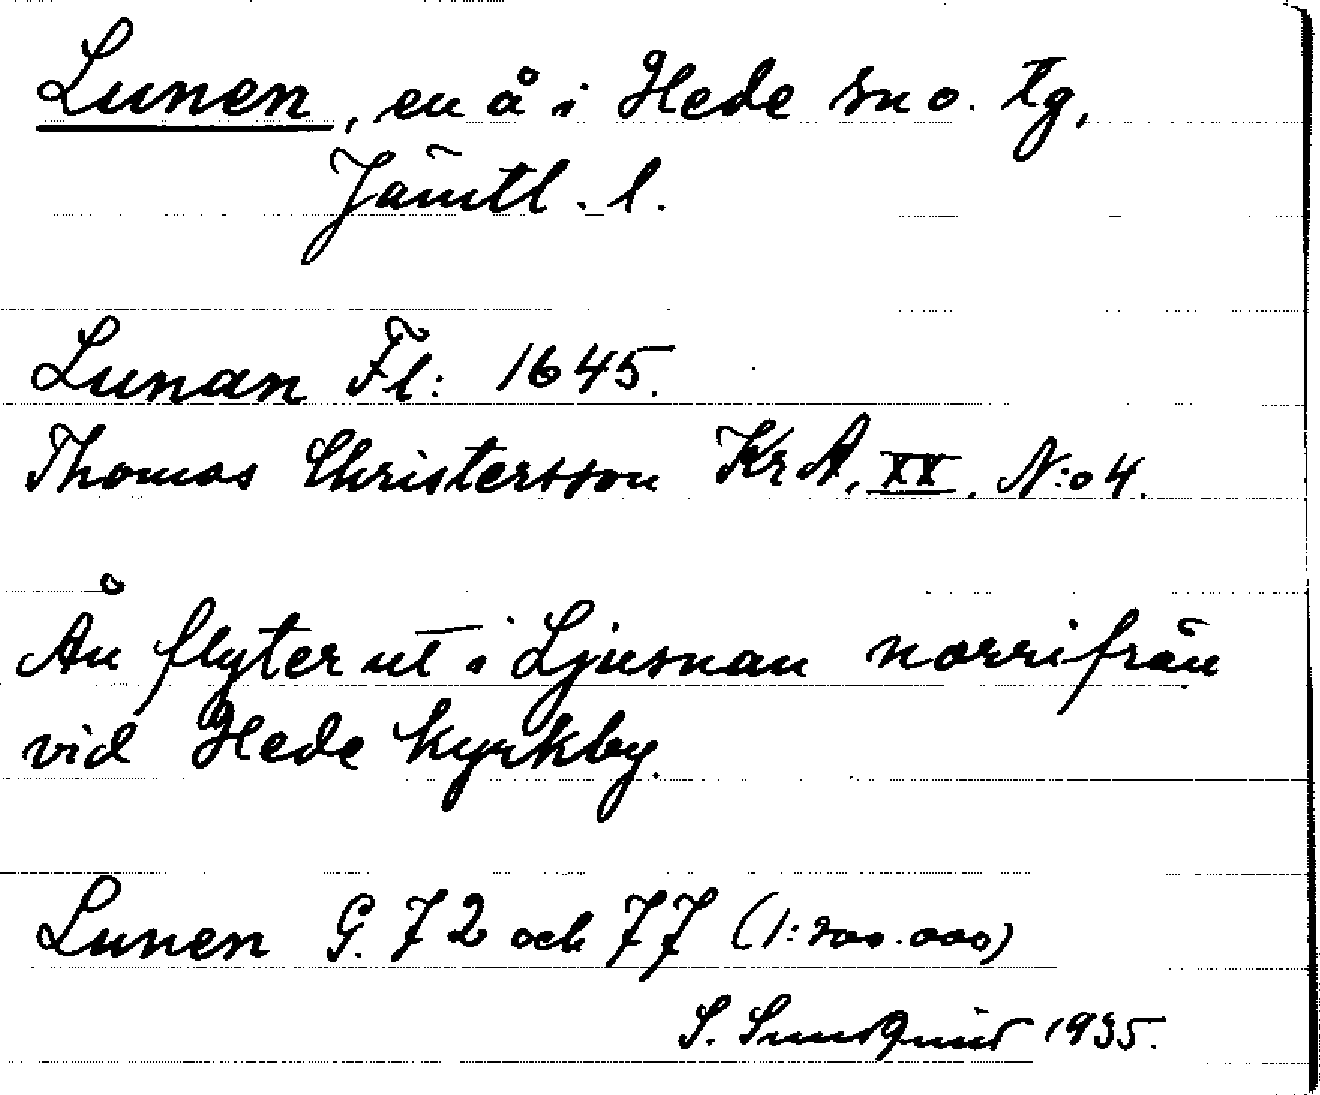 Lunen, en å i Hede sn o. tg,
Jämtl. l.
Lunan Fl: 1645.
Thomas Christersson Kr A, XX, N:o 4.
Ån flyter ut i Ljusnan norrifrån
vid Hede kyrkby.
Lunen G. 72 och 77 (1:200.000)
S. Sundquist 1935.